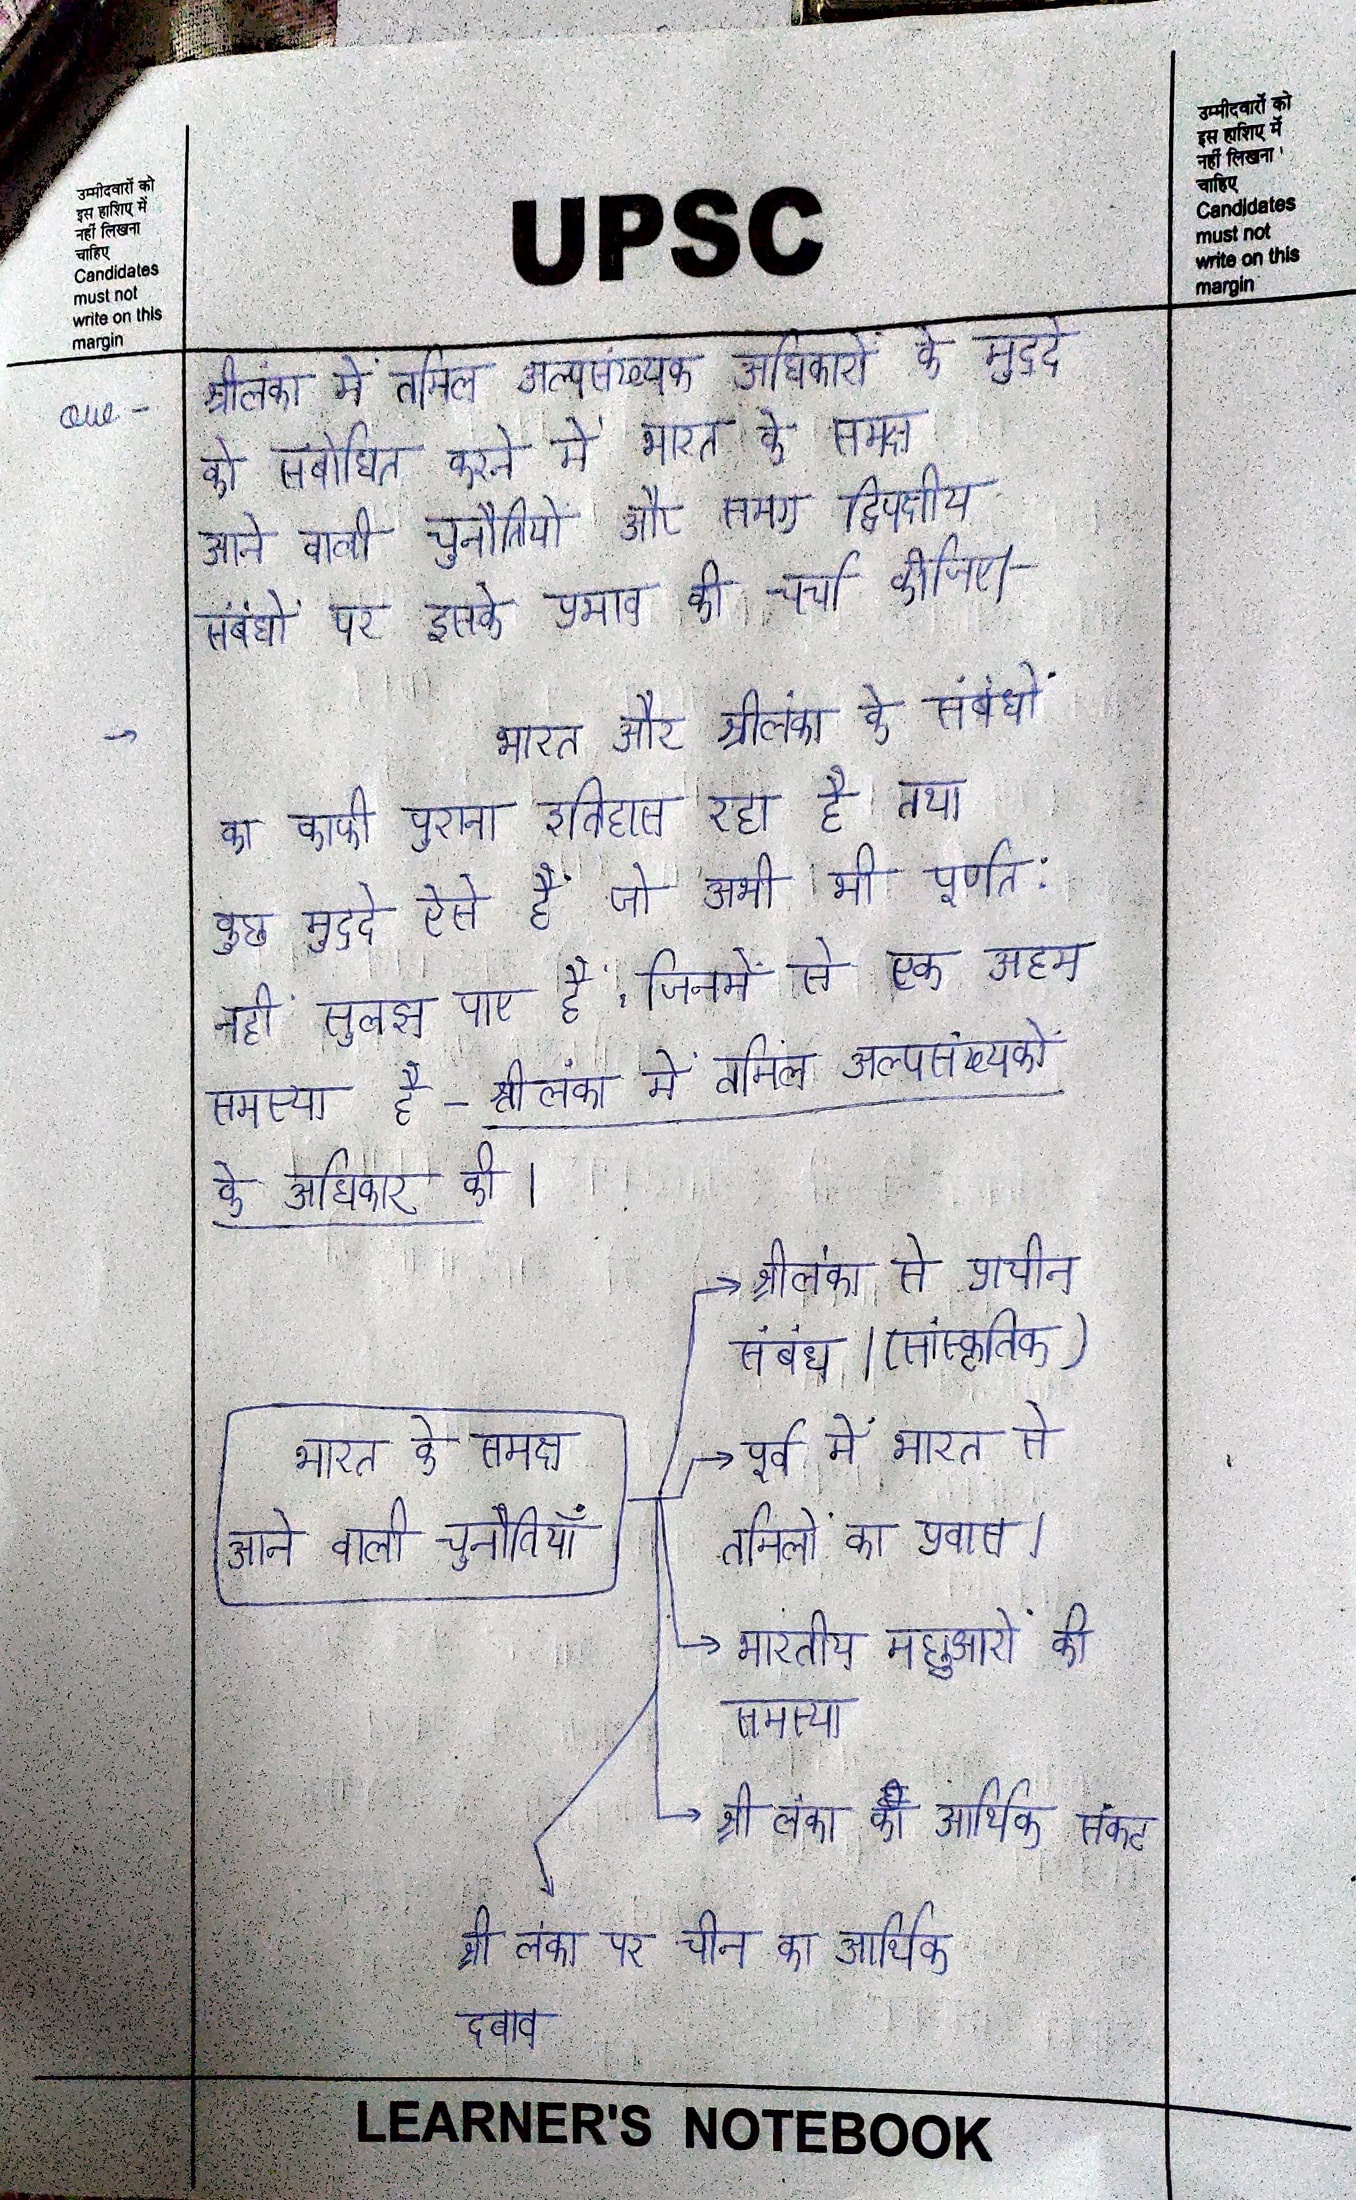 उम्मीदवारों को
इस हाशिए में
नहीं लिखना
चाहिए
Candidates
must not
write on this
margin
UPSC
उम्मीदवारों को
इस हाशिए में
नहीं लिखना
चाहिए
Candidates
must not
write on this
margin
Que - श्रीलंका में तमिल अल्पसंख्यक अधिकारों के मुद्दे
को संबोधित करने में भारत के समक्ष
आने वाली चुनौतियों और समग्र द्विपक्षीय
संबंधों पर इसके प्रभाव की चर्चा कीजिए।-
→ भारत और श्रीलंका के संबंधों
का काफी पुराना इतिहास रहा है तथा
कुछ मुद्दे ऐसे हैं जो अभी भी पूर्णत:
नहीं सुलझ पाए हैं, जिनमें से एक अहम
समस्या है - श्रीलंका में तमिल अल्पसंख्यकों
के अधिकार की।
→ श्रीलंका से प्राचीन
संबंध। (सांस्कृतिक)
भारत के समक्ष
आने वाली चुनौतियाँ
→ पूर्व में भारत से
तमिलों का प्रवास।
→ भारतीय मछुआरों की
समस्या
→ श्री लंका की आर्थिक संकट
श्री लंका पर चीन का आर्थिक
दबाव
LEARNER'S NOTEBOOK